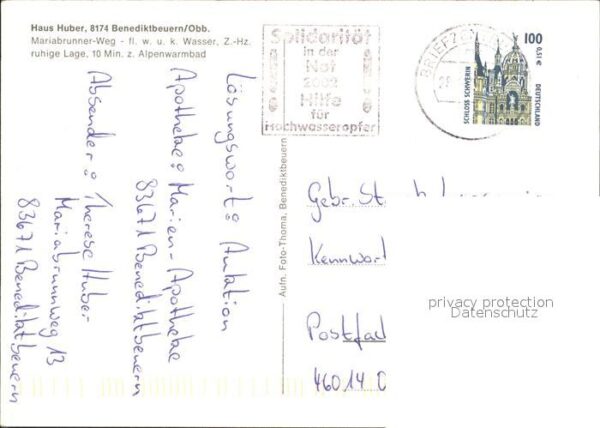 Haus Huber, 8174 Benediktbeuern/Obb.
Mariabrunner-Weg - fl. w. u. k. Wasser, Z.-Hz.
ruhige Lage, 10 Min. z. Alpenwarmbad
Solidarität
in der
Not
2002
Hilfe
für
Hochwasseropfer
BRIEFZEN
100
0,51 €
SCHLOSS SCHWERIN
DEUTSCHLAND
Lösungswort:
Apotheke: Marien-Apotheke
83671 Benediktbeuern
Absender: Therese Huber
Mariabrunnweg 13
83671 Benediktbeuern
Aufn. Foto-Thoma, Benediktbeuern
Gebr. St
Kennwort
Postfac
46014
privacy protection
Datenschutz